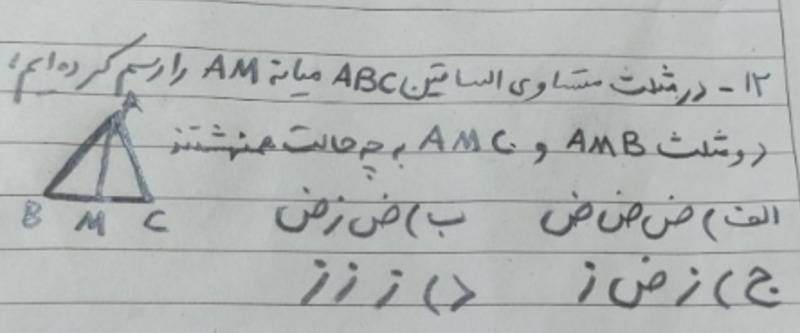 ۱۲ - در مثلث متساوی الساقین ABC میانه AM را رسم کرده ایم؛
دو مثلث AMB و AMC به چه حالت هم‌نهشتند
A
B M C
الف) ض ض ض ب) ض ز ض
ج) ز ض ز د) ز ز ز